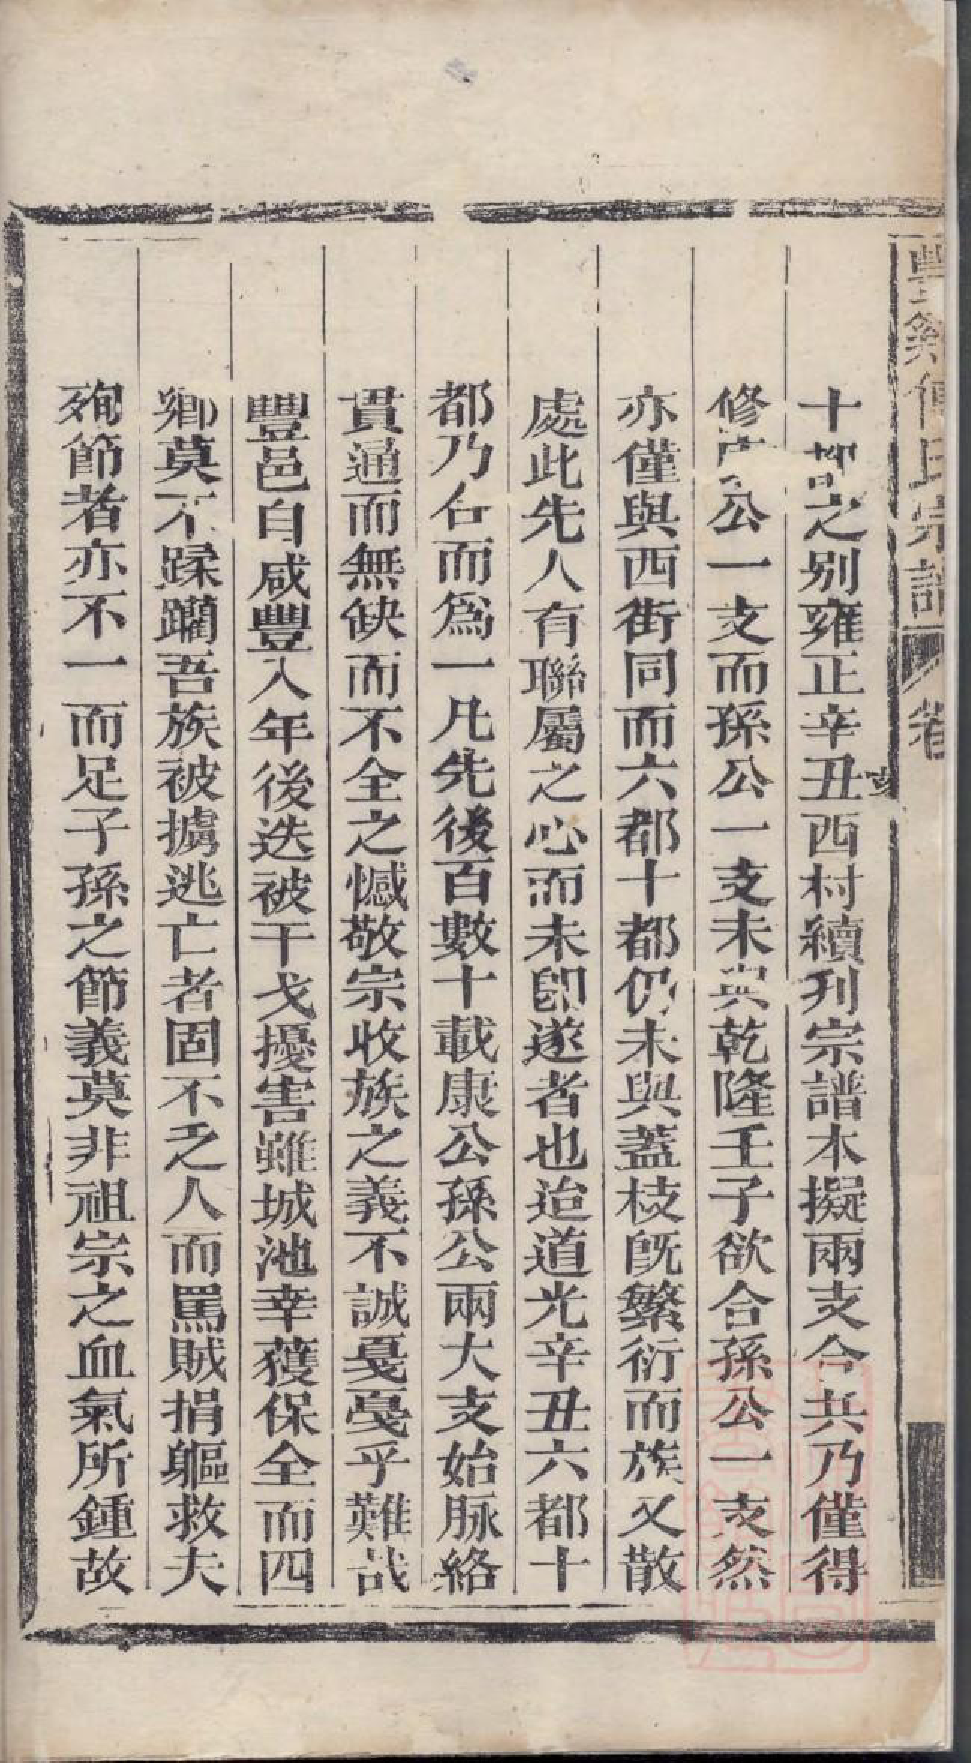 豐谿傅氏宗譜 卷
十都之别雍正辛丑西村續刋宗譜本擬兩支合共乃僅得
修康公一支而孫公一支未與乾隆壬子欲合孫公一支然
亦僅與西街同而六都十都仍未與蓋枝旣繁衍而族又散
處此先人有聯屬之心而未卽遂者也迨道光辛丑六都十
都乃合而爲一凡先後百數十載康公孫公兩大支始脉絡
貫通而無缺而不全之憾敬宗收族之義不誠戞戞乎難哉
豐邑自咸豐八年後迭被干戈擾害雖城池幸獲保全而四
鄉莫不蹂躪吾族被擄逃亡者固不乏人而罵賊捐軀救夫
殉節者亦不一而足子孫之節義莫非祖宗之血氣所鍾故